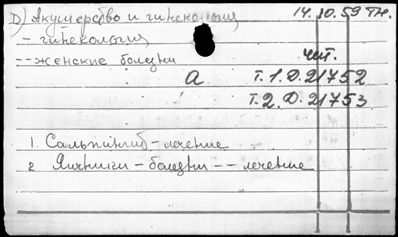 D) Акушерство и гинекология 14.10.59 Тн.
- гинекология
-- женские болезни чит.
а Т.1.D.21752
Т.2.D.21753
1. Сальпингит - лечение
2 Яичники - болезни -- лечение